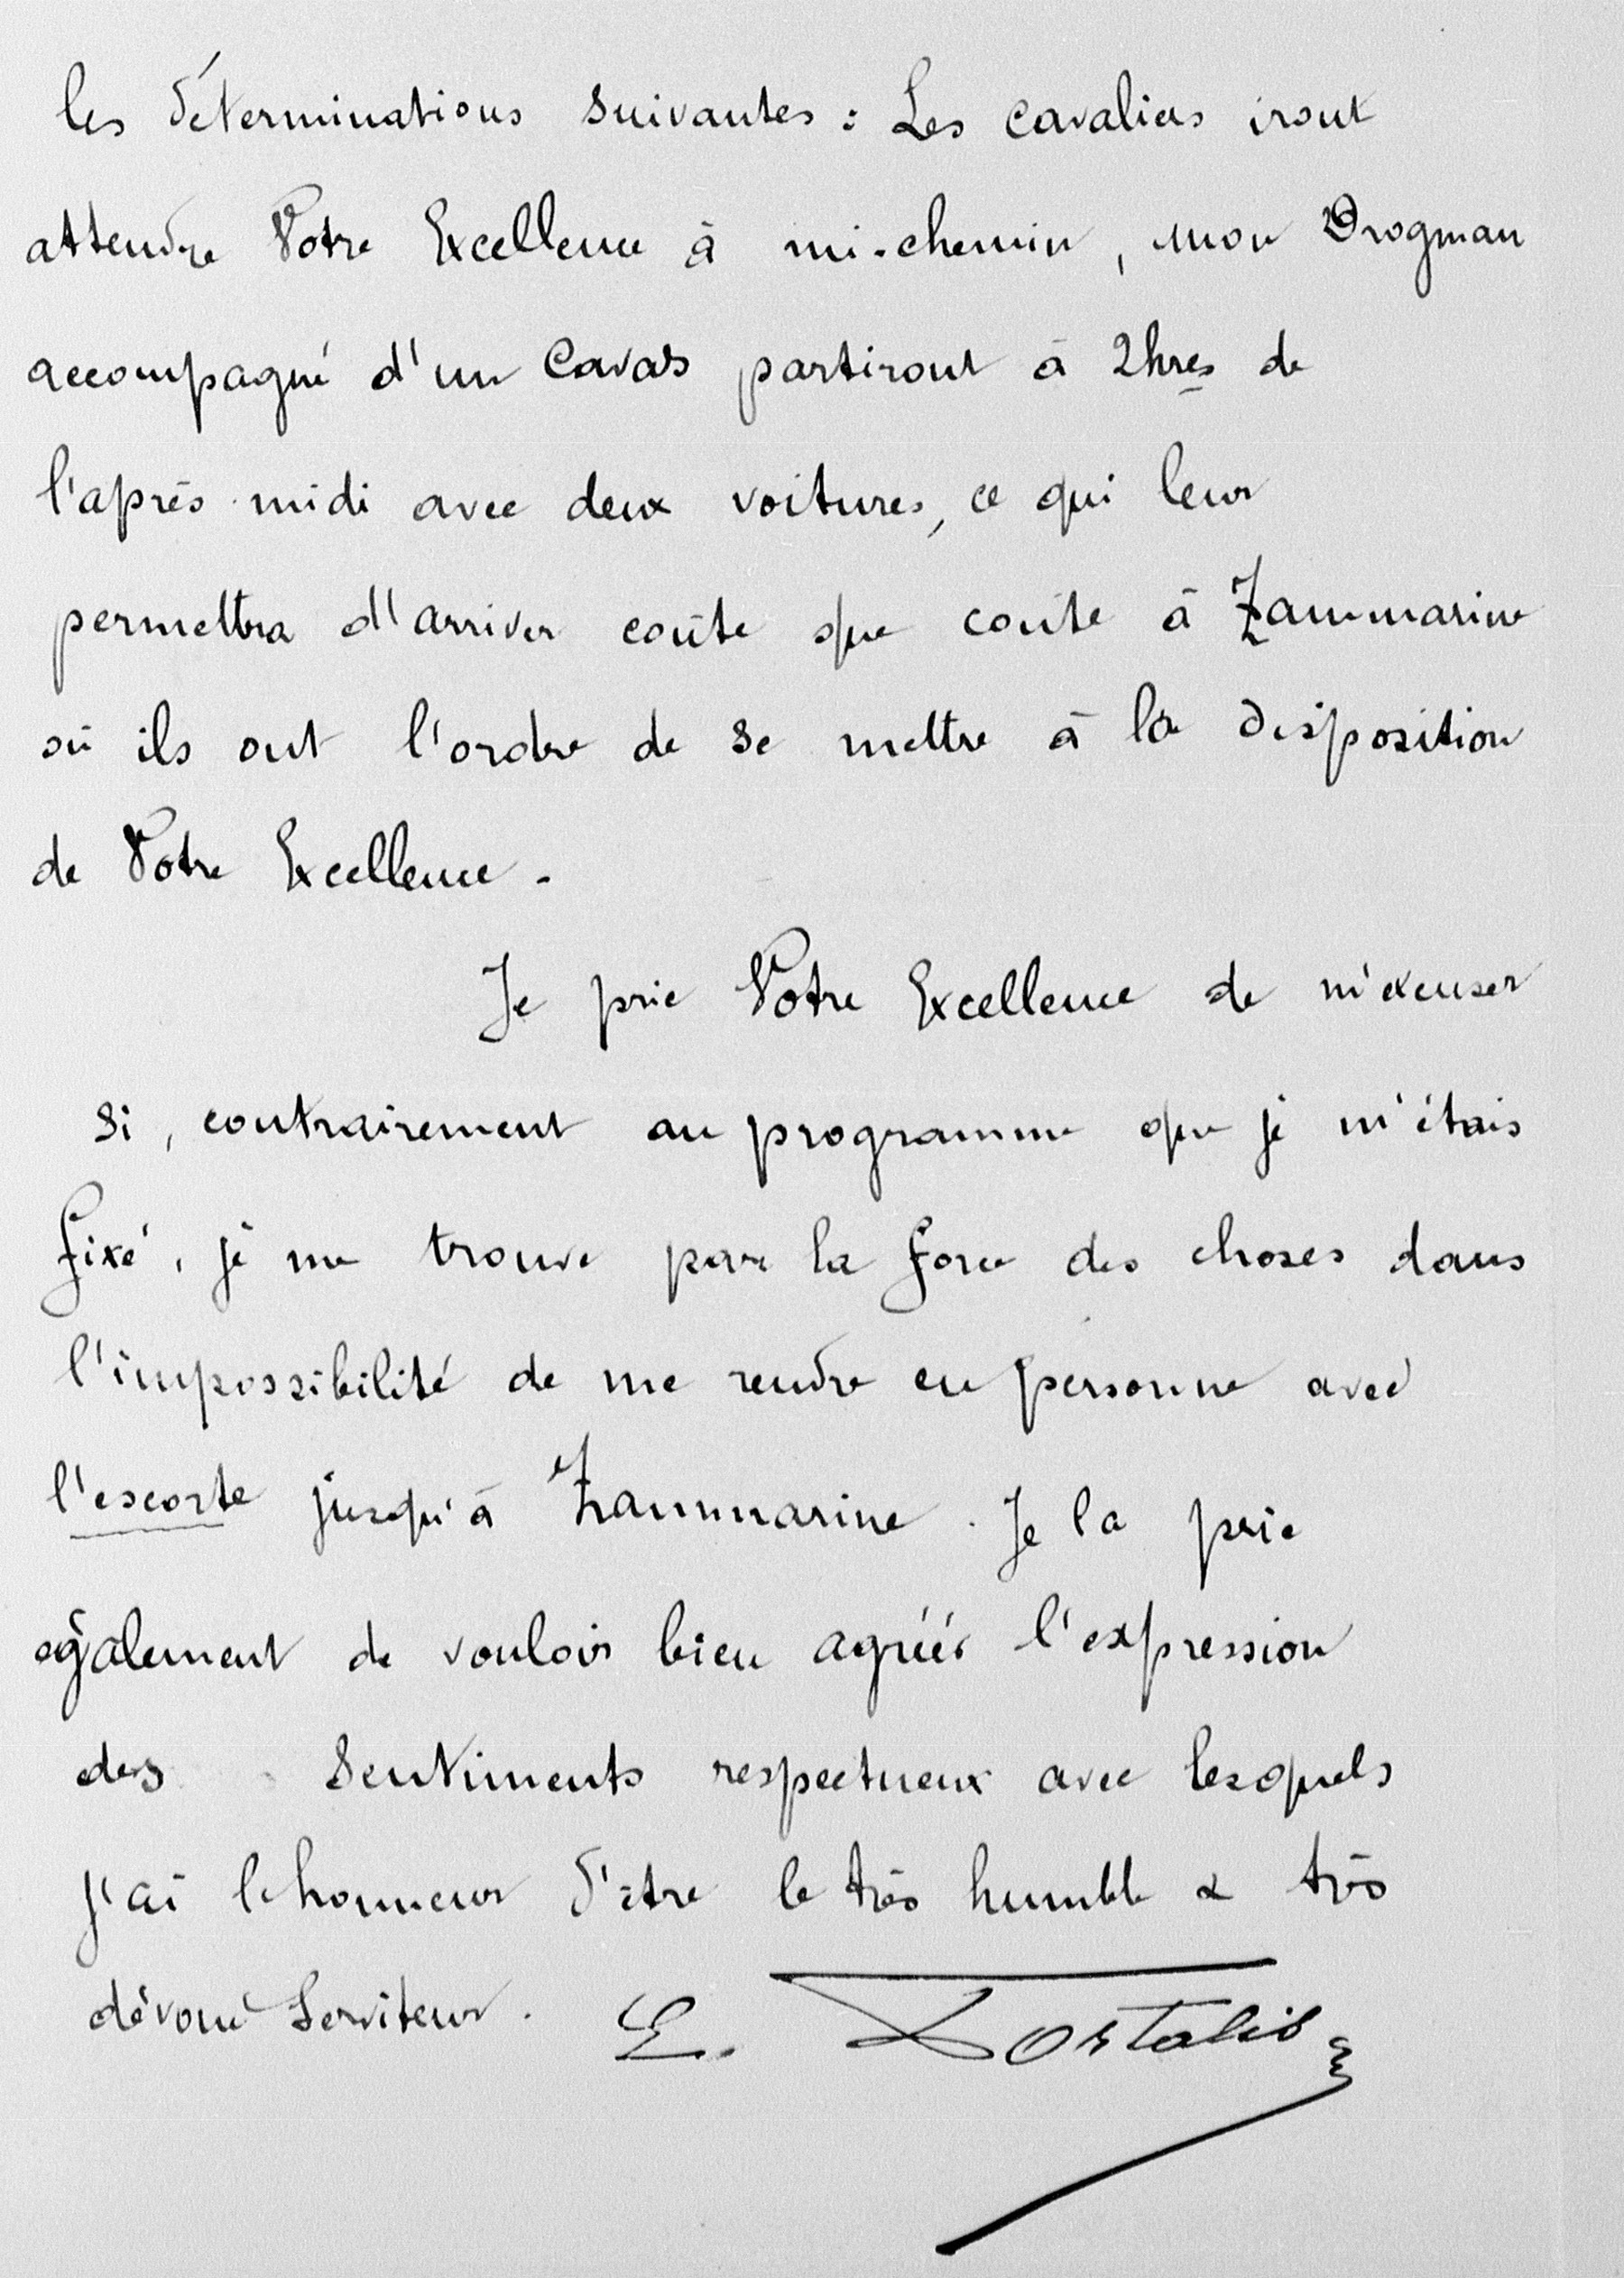 les déterminations suivantes : Les cavaliers iront
attendre Votre Excellence à mi-chemin, mon Drogman
accompagné d'un Cavas partiront à 2hres de
l'après-midi avec deux voitures, ce qui leur
permettra d'arriver coûte que coûte à Zammarine
où ils ont l'ordre de se mettre à la disposition
de Votre Excellence.
Je prie Votre Excellence de m'excuser
si, contrairement au programme que je m'étais
fixé, je me trouve par la force des choses dans
l'impossibilité de me rendre en personne avec
l'escorte jusqu'à Zammarine. Je la prie
également de vouloir bien agréér l'expression
des sentiments respectueux avec lesquels
j'ai l'honneur d'être le très humble & très
dévoué Serviteur. E. Portalis